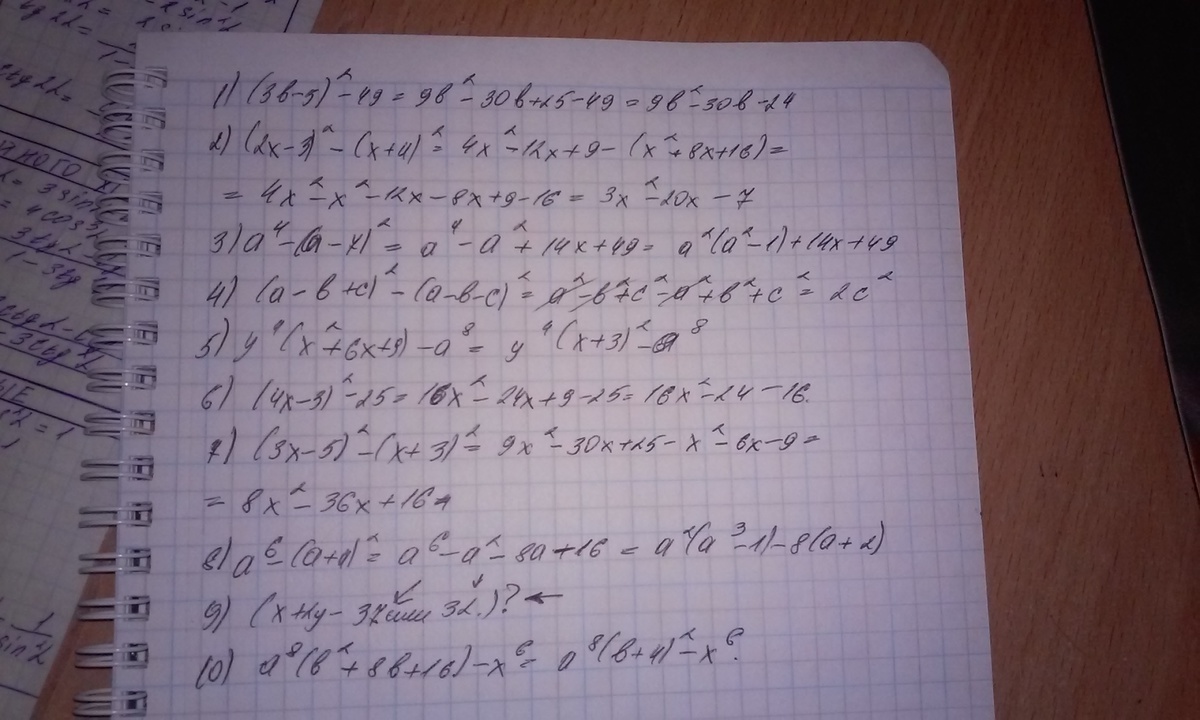 1) (3в-5)² - 49 = 9в² - 30в+25-49 = 9в²-30в-24
2) (2x-3)² - (x+4)² = 4x² - 12x+9 - (x²+8x+16) =
= 4x² - x² - 12x - 8x+9-16 = 3x² - 20x - 7
3) a⁴ - (a-7)² = a⁴ - a² + 14x + 49 = a²(a²-1) + 14x + 49
4) (a-в+c)² - (a-в-c)² = a²-в²+c²-a²+в²+c² = 2c²
5) y⁴(x²+6x+9) - a⁸ = y⁴(x+3)² - a⁸
6) (4x-3)² - 25 = 16x² - 24x + 9 - 25 = 16x² - 24 - 16.
7) (3x-5)² - (x+3)² = 9x² - 30x+25 - x² - 6x - 9 =
= 8x² - 36x + 16
8) a⁶ - (a+4)² = a⁶ - a² - 8a + 16 = a²(a³-1) - 8(a+2)
9) (x+2y - 37 или 32.)? ←
10) a⁸(в²+8в+16) - x⁶ = a⁸(в+4)² - x⁶.